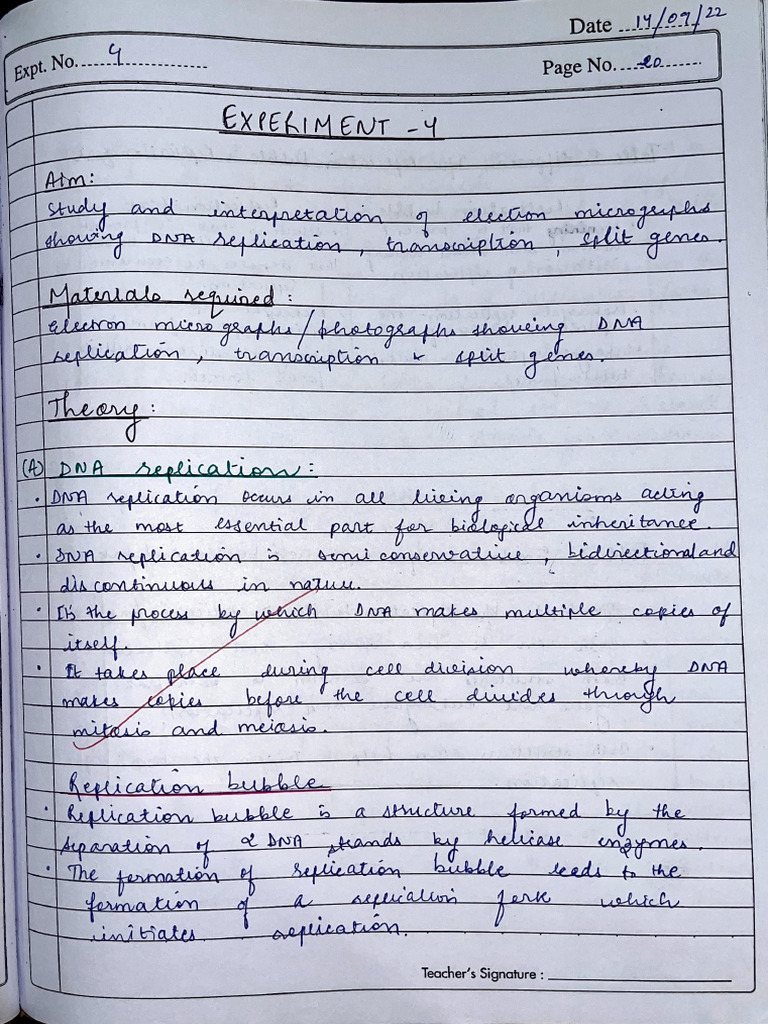 Date ....14/09/22
Expt. No. ....4....
Page No. ....20....
EXPERIMENT - 4
Aim:
Study and interpretation of election micrographs
showing DNA replication, transcription, split genes.
Materials required:
Electron micrographs/photographs showing DNA
replication, transcription & split genes.
Theory:
(A) DNA replication:
• DNA replication occurs in all living organisms acting
as the most essential part for biological inheritance.
• DNA replication is semi conservative, bidirectional and
discontinuous in nature.
• It is the process by which DNA makes multiple copies of
itself.
• It takes place during cell division whereby DNA
makes copies before the cell divides through
mitosis and meiosis.
Replication bubble
• Replication bubble is a structure formed by the
separation of 2 DNA strands by helicase enzymes.
• The formation of replication bubble leads to the
formation of a replication fork which
initiates replication.
Teacher's Signature :